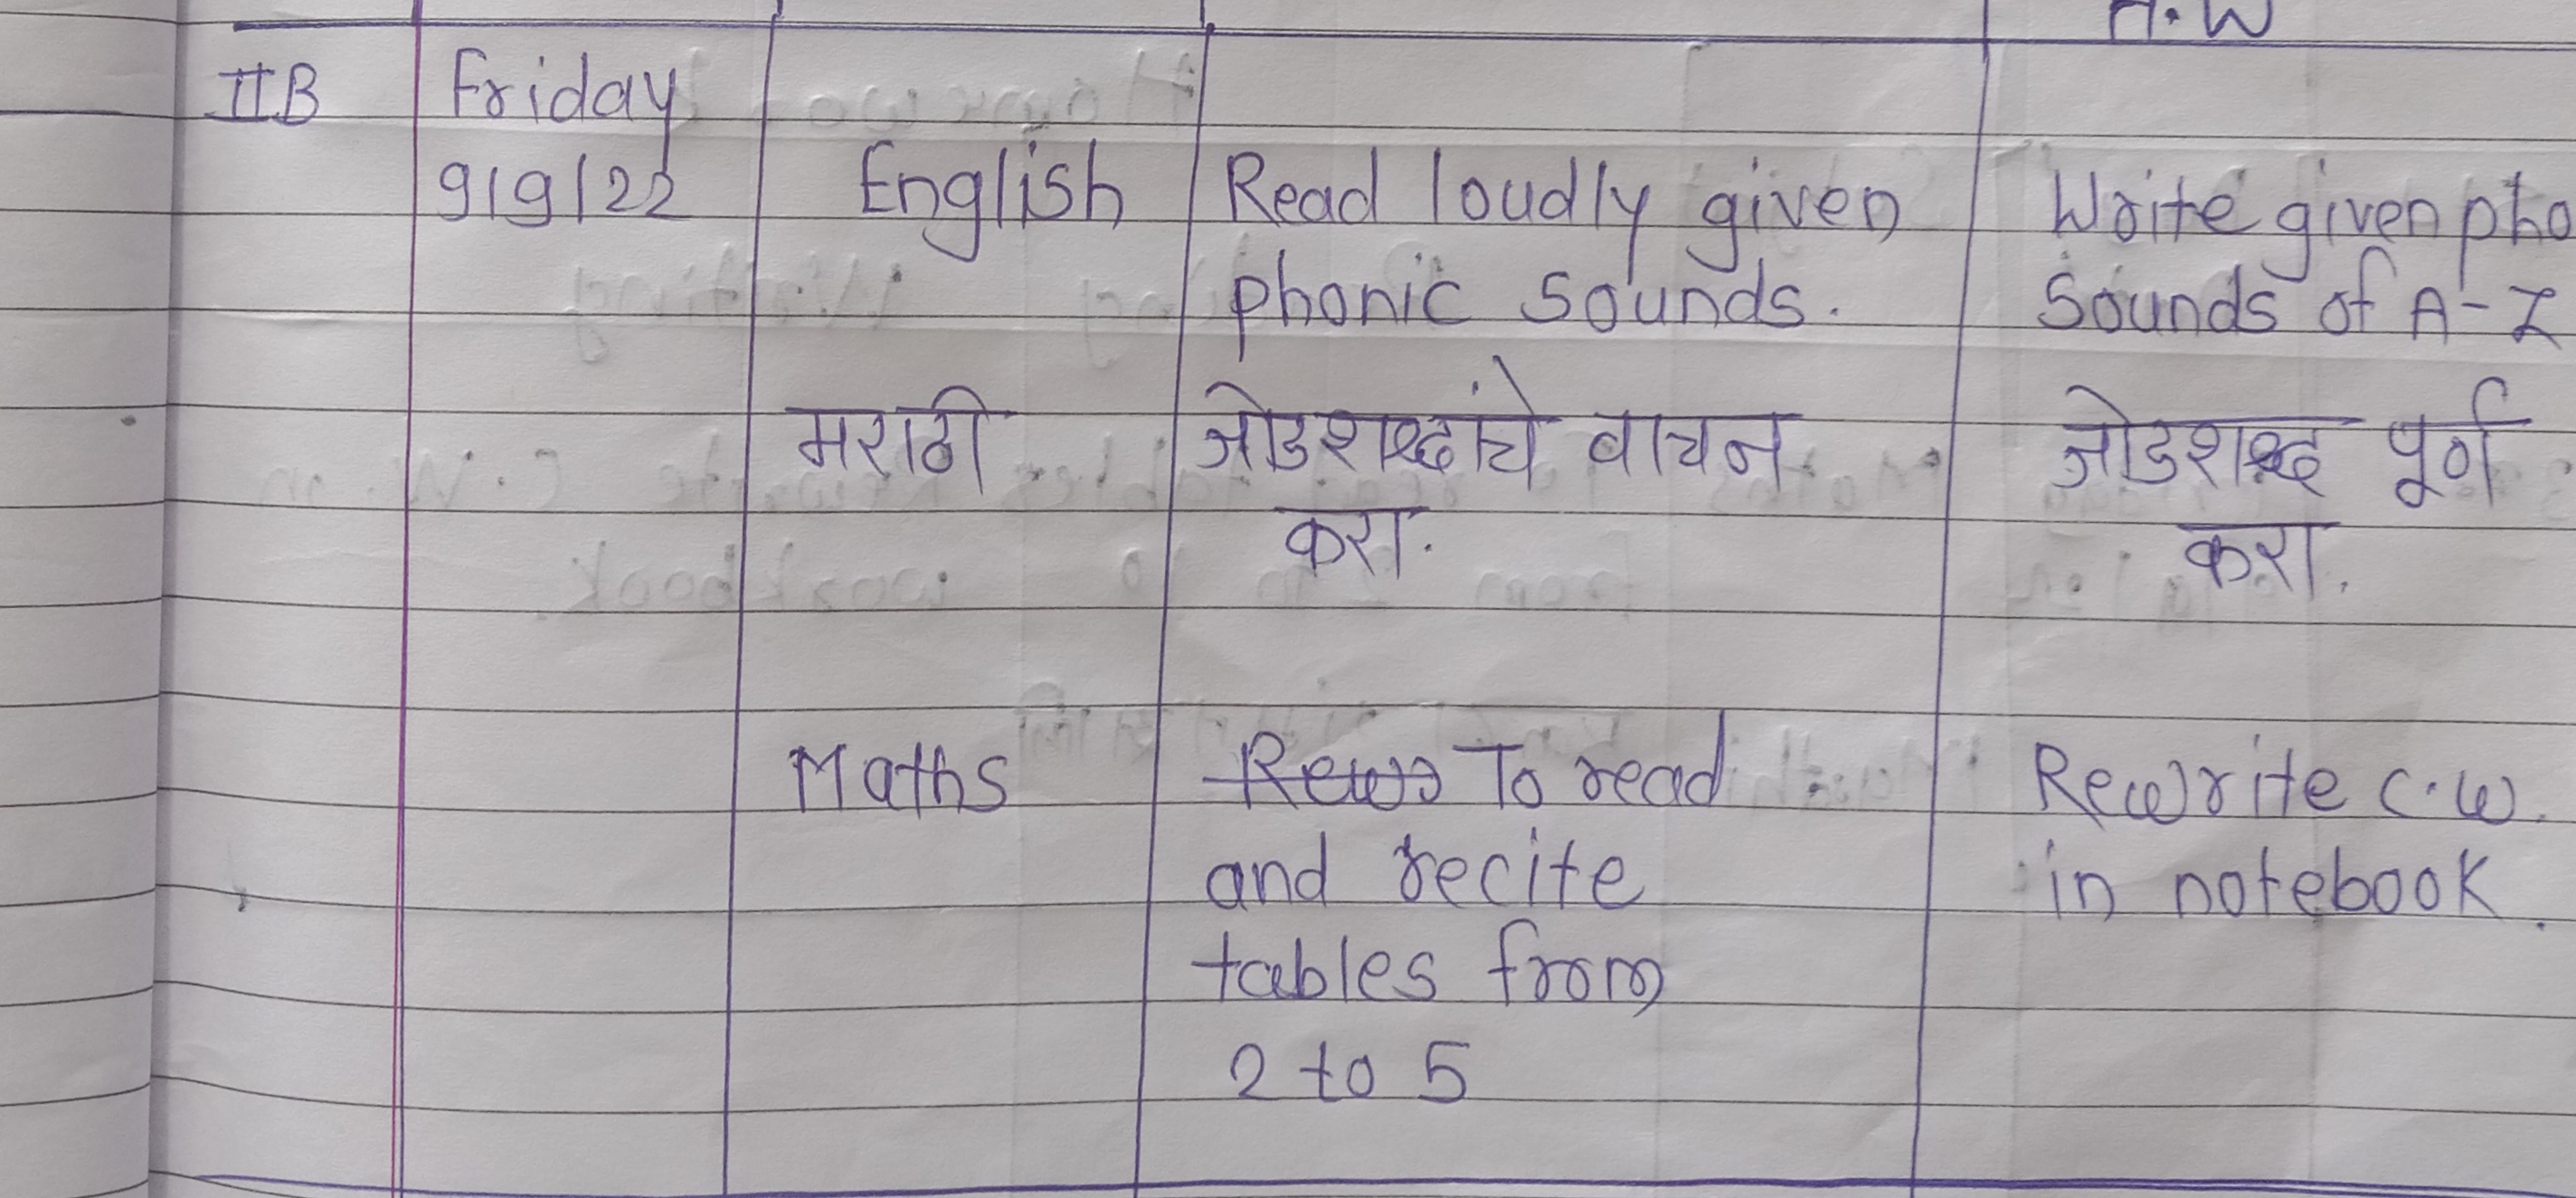 H.W
IIB Friday
9/9/22 English Read loudly given Write given pho
phonic sounds. Sounds of A-Z
मराठी जोडशब्दांचे वाचन जोडशब्द पूर्ण
करा. करा.
Maths To read Rewrite C.W.
and recite in notebook.
tables from
2 to 5